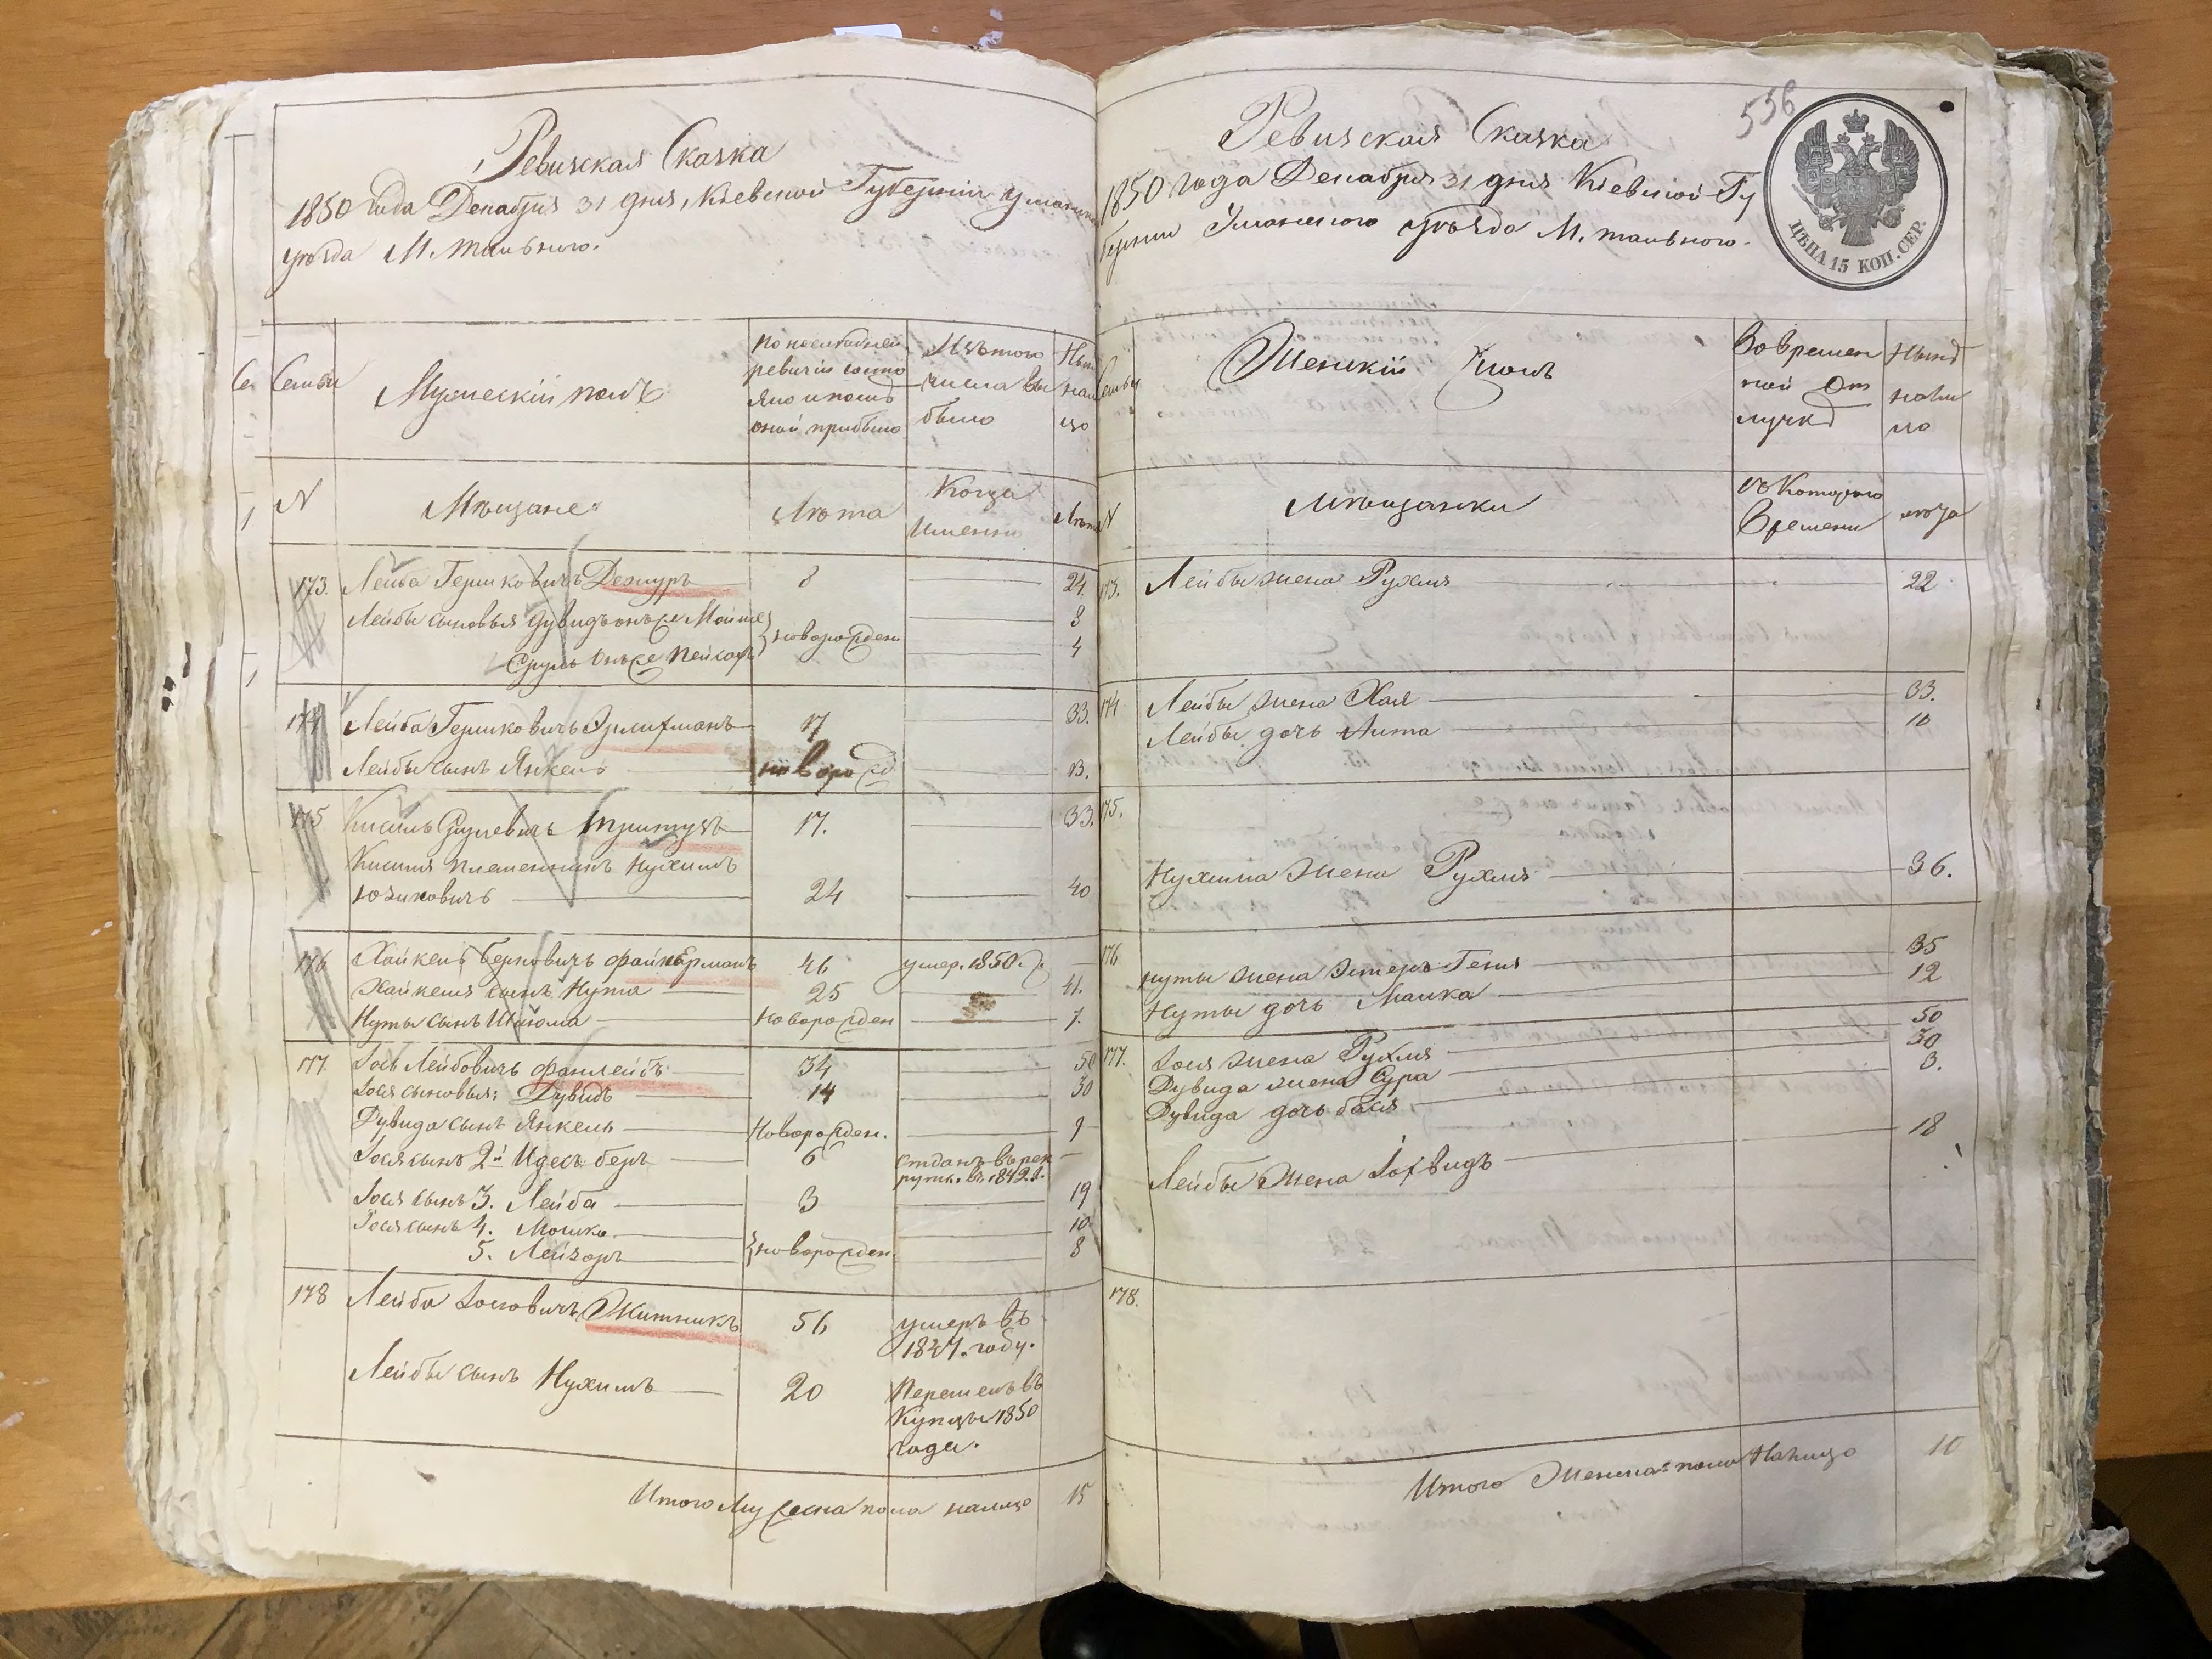 Ревизская Сказка
1850 года Декабря 31 дня, Киевской Губернии Уманск
уезда М. Тального.
Семьи
Мужескій полъ
По последней
ревизіи состо
яло и послѣ
оной прибыло
Изъ того
числа вы
было
Нын
нали
цо
N
Мѣщане
Лѣта
Когда
Именно
Лѣта
173. Лейба Гершковичъ Дежуръ 8 24.
Лейбы сыновья Дувидъ онъ же Мойше 8
новорожден
Сруль онъ же Пейсахъ 4
174 Лейба Гершковичъ Эрлихманъ 17 33.
Лейбы сынъ Янкель новорожд 13.
175 Кисиль Срулевичъ 17. 33.
Кисиля племенникъ Нухимъ
Юзиковичъ 24 40
176 Хайкель Берковичъ Файнберманъ 46 умер. 1850.
Хайкеля сынъ Нута 25 41.
Нуты сынъ Шлiома Новорожден 7.
177. Іось Лейбовичъ Фанлейбъ 34 50
Іося сыновья: Дувидъ 14 30
Дувида сынъ Янкель Новорожден. 9
Іося сынъ 2й Идесъ беръ 6 отданъ в рек
рут. въ 1842 г.
Іося сынъ 3. Лейба 3 19
Іося сынъ 4. Мошко 10
новорожден.
5. Лейзоръ 8
178 Лейба Іосиовичъ Житникъ 56 умеръ въ
1847. году.
Лейбы сынъ Нухимъ 20 Перешелъ въ
Купцы 1850
года.
Итого Мужеска пола налицо 15
556
Ревизская Сказка
1850 года Декабря 31 дня Кіевской Гу
берніи Уманского уѣзда М. Тального.
ЦѢНА 15 КОП. СЕР.
Семьи
Женскій Полъ
Во времен
ной От
лучкѣ
Нынѣ
нали
цо
N
Мѣщанки
съ Которого
Времени
лѣта
173. Лейбы жена Рухля 22
174 Лейбы жена Хая 33.
Лейбы дочь Лита 10
175.
Нухима жена Рухля 36.
176 Нуты жена Эстеръ Геня 35
Нуты дочь Малка 12
177. Іося жена Рухля 50
Дувида жена Сура 30
Дувида дочь Бася 3.
Лейбы жена Іохвидъ 18
178.
Итого Женска пола Налицо 10